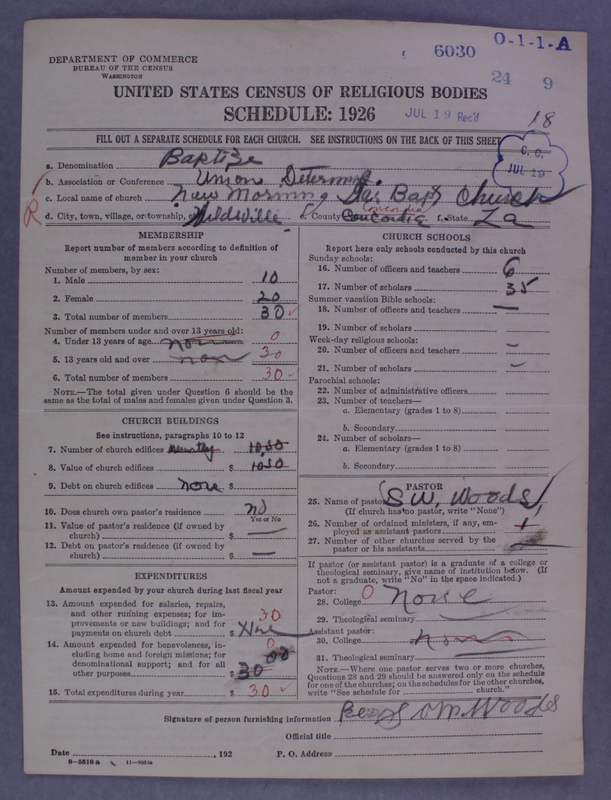 DEPARTMENT OF COMMERCE
BUREAU OF THE CENSUS
WASHINGTON
6030
0-1-1-A
24 9
UNITED STATES CENSUS OF RELIGIOUS BODIES
SCHEDULE: 1926
JUL 19 Rec'd
18
FILL OUT A SEPARATE SCHEDULE FOR EACH CHURCH. SEE INSTRUCTIONS ON THE BACK OF THIS SHEET
C. C.
JUL 19
a. Denomination Baptise
b. Association or Conference Union Determine
c. Local name of church New Morning Star Bapt Church
R
d. City, town, village, or township, Wildsville e. County Concordia Concordia f. State La
MEMBERSHIP
Report number of members according to definition of
member in your church
Number of members, by sex:
1. Male 10
2. Female 20
3. Total number of members 30
Number of members under and over 13 years old:
4. Under 13 years of age non 0
5. 13 years old and over non 30
6. Total number of members 30
NOTE.—The total given under Question 6 should be the
same as the total of males and females given under Question 3.
CHURCH BUILDINGS
See instructions, paragraphs 10 to 12
7. Number of church edifices 1050
8. Value of church edifices $ 1050
9. Debt on church edifices none $
10. Does church own pastor's residence no
Yes or No
11. Value of pastor's residence (if owned by
church) $ —
12. Debt on pastor's residence (if owned by
church) $ —
EXPENDITURES
Amount expended by your church during last fiscal year
13. Amount expended for salaries, repairs,
and other running expenses; for im-
provements or new buildings; and for
payments on church debt $ 30
14. Amount expended for benevolences, in-
cluding home and foreign missions; for
denominational support; and for all
other purposes $ 30 00 0
15. Total expenditures during year $ 30
CHURCH SCHOOLS
Report here only schools conducted by this church
Sunday schools:
16. Number of officers and teachers 6
17. Number of scholars 35
Summer vacation Bible schools:
18. Number of officers and teachers —
19. Number of scholars
Week-day religious schools:
20. Number of officers and teachers —
21. Number of scholars —
Parochial schools:
22. Number of administrative officers
23. Number of teachers—
a. Elementary (grades 1 to 8)
b. Secondary
24. Number of scholars—
a. Elementary (grades 1 to 8)
b. Secondary
PASTOR
25. Name of pastor S W. Woods
(If church has no pastor, write "None")
26. Number of ordained ministers, if any, em-
ployed as assistant pastors 1
27. Number of other churches served by the
pastor or his assistants
If pastor (or assistant pastor) is a graduate of a college or
theological seminary, give name of institution below. (If
not a graduate, write "No" in the space indicated.)
Pastor:
28. College 0 None
29. Theological seminary
Assistant pastor:
30. College none
31. Theological seminary
NOTE.—Where one pastor serves two or more churches,
Questions 28 and 29 should be answered only on the schedule
for one of the churches; on the schedules for the other churches,
write "See schedule for church."
Signature of person furnishing information Woods
Official title
Date , 192 P. O. Address
8-5518 a 11-9051a